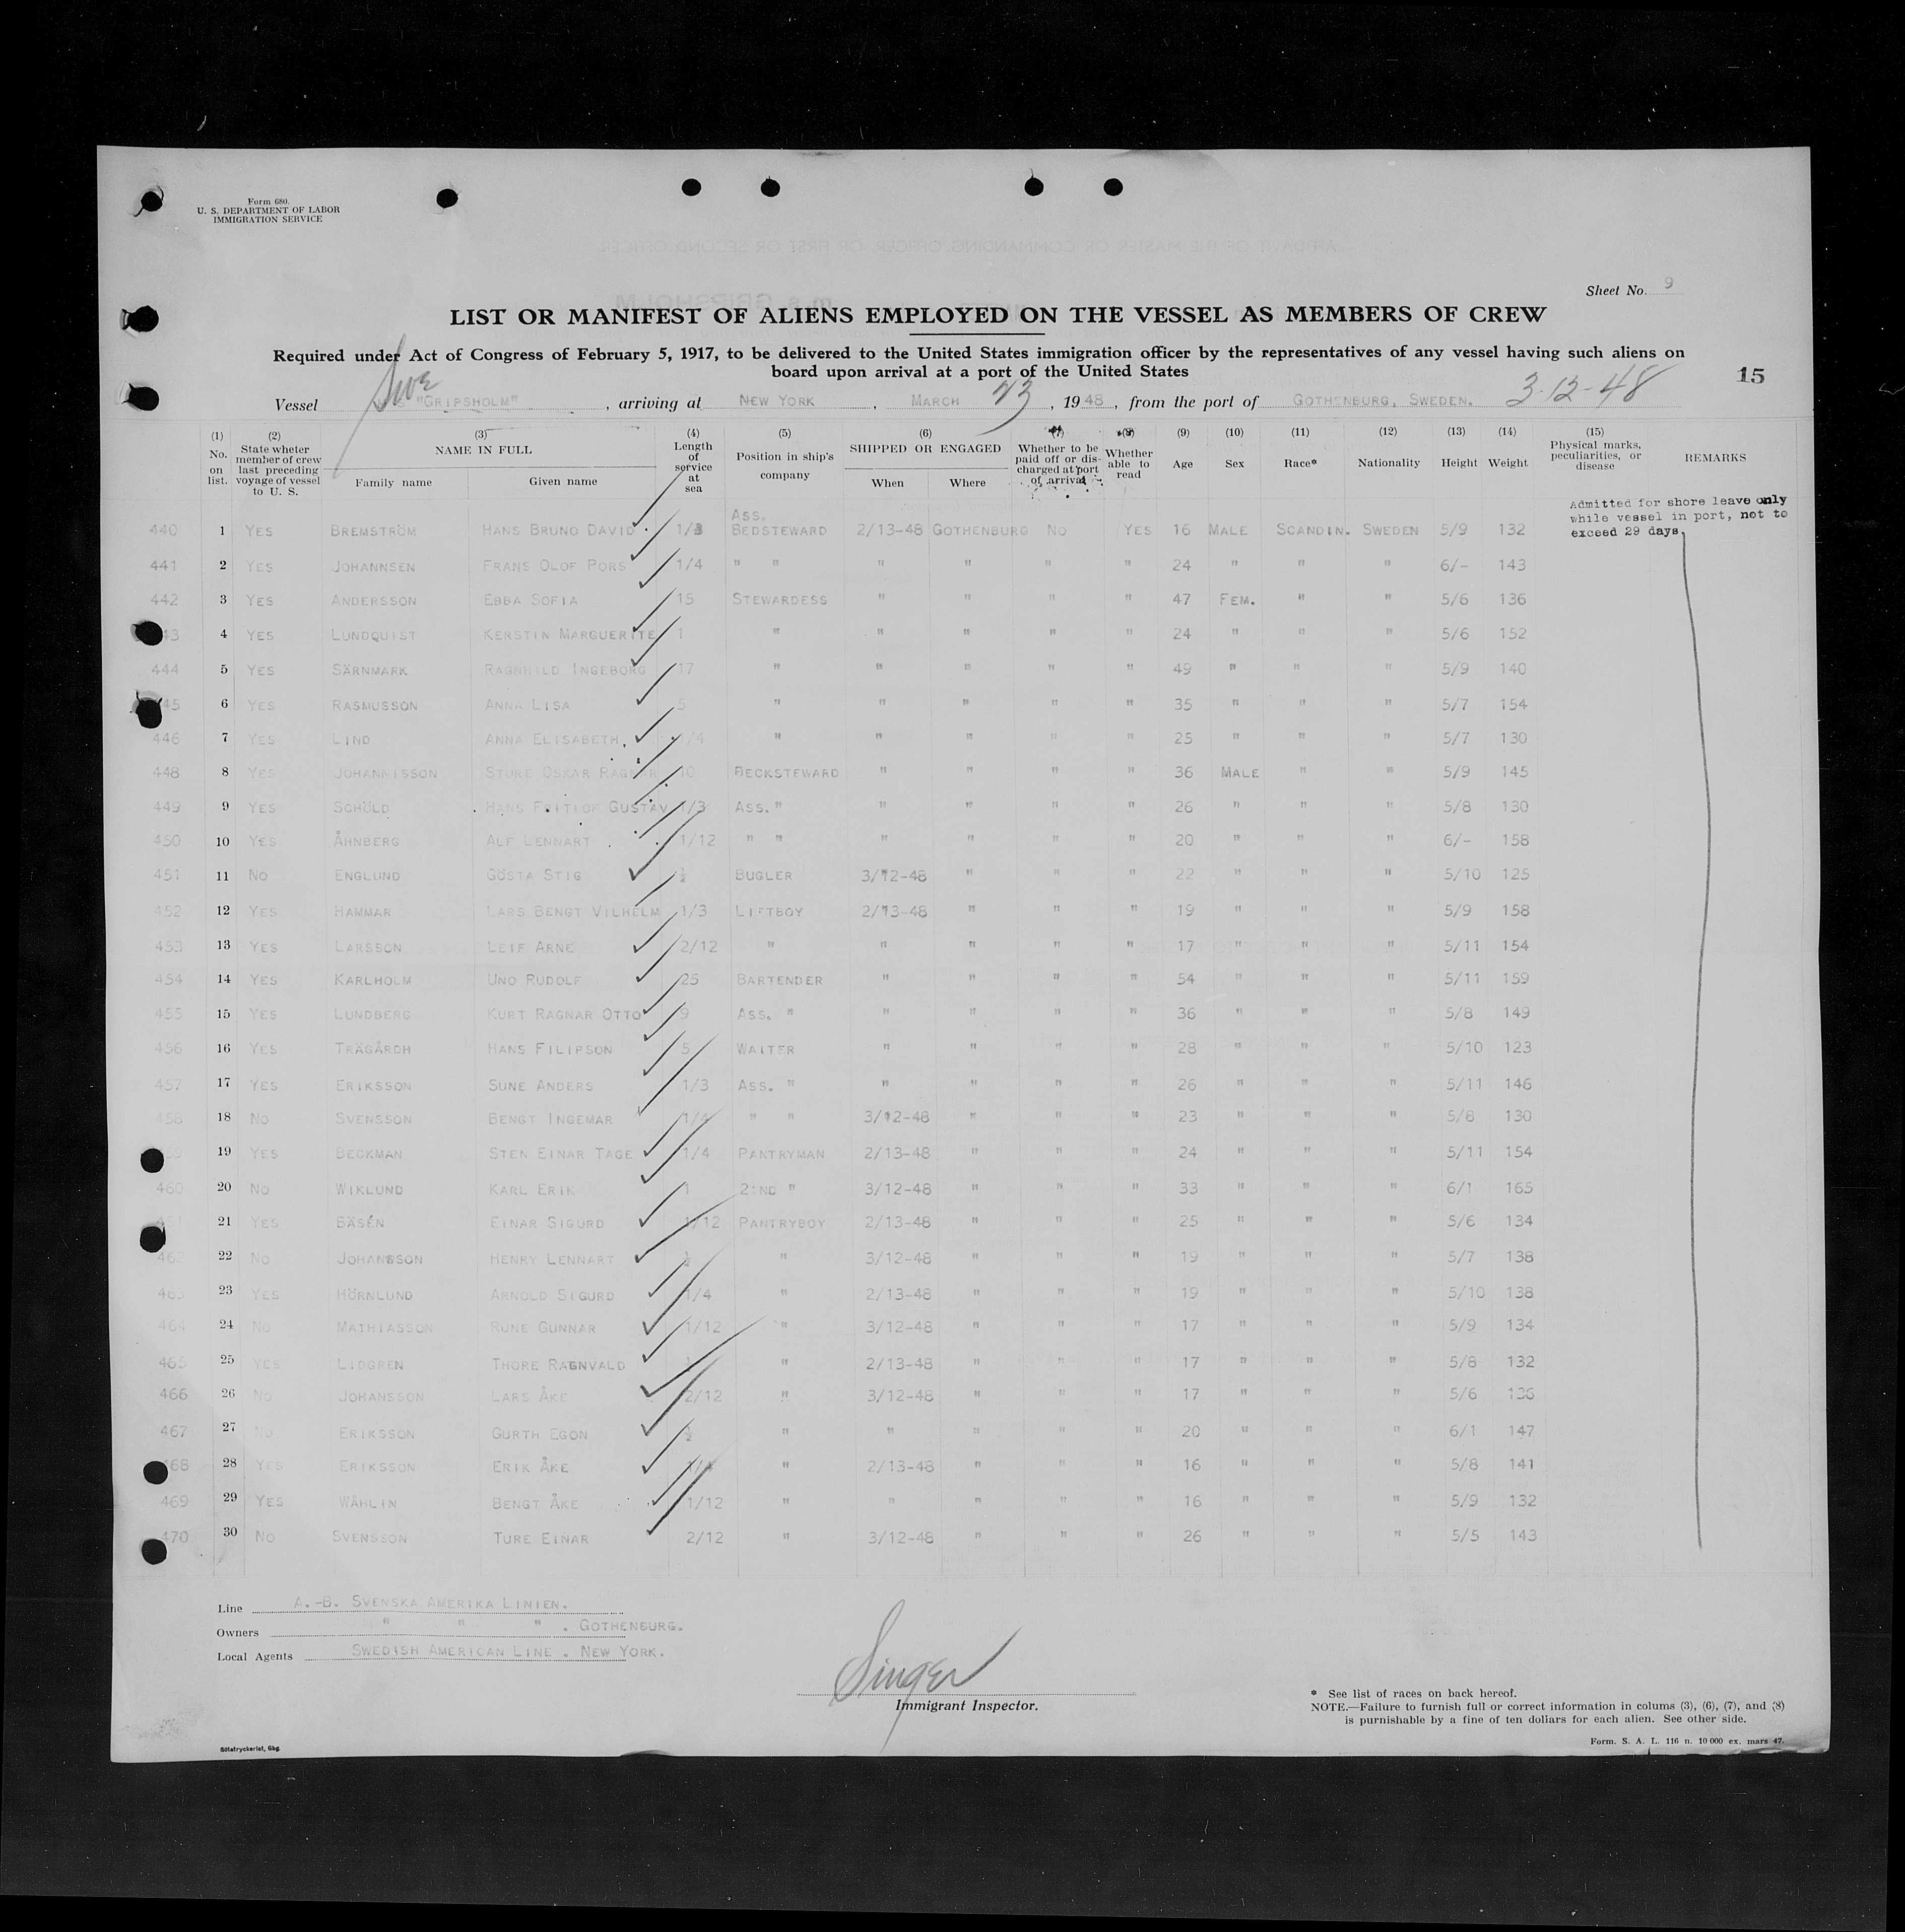 Form 680.
U. S. DEPARTMENT OF LABOR
IMMIGRATION SERVICE
Sheet No. 9
LIST OR MANIFEST OF ALIENS EMPLOYED ON THE VESSEL AS MEMBERS OF CREW
Required under Act of Congress of February 5, 1917, to be delivered to the United States immigration officer by the representatives of any vessel having such aliens on
board upon arrival at a port of the United States
15
Vessel "GRIPSHOLM", arriving at NEW YORK, MARCH 23, 1948, from the port of GOTHENBURG, SWEDEN. 3-12-48
(1) No. on list. (2) State wheter member of crew last preceding voyage of vessel to U. S. (3) NAME IN FULL Family name Given name (4) Length of service at sea (5) Position in ship's company (6) SHIPPED OR ENGAGED When Where (7) Whether to be paid off or discharged at port of arrival (8) Whether able to read (9) Age (10) Sex (11) Race* (12) Nationality (13) Height (14) Weight (15) Physical marks, peculiarities, or disease REMARKS
Admitted for shore leave only
while vessel in port, not to
exceed 29 days.
440 1 YES BREMSTRÖM HANS BRUNO DAVID 1/3 ASS. BEDSTEWARD 2/13-48 GOTHENBURG NO YES 16 MALE SCANDIN. SWEDEN 5/9 132
441 2 YES JOHANNSEN FRANS OLOF PORS 1/4 " " " " " " 24 " " " 6/- 143
442 3 YES ANDERSSON EBBA SOFIA 15 STEWARDESS " " " " 47 FEM. " " 5/6 136
43 4 YES LUNDQUIST KERSTIN MARGUERITE 1 " " " " " 24 " " " 5/6 152
444 5 YES SÄRNMARK RAGNHILD INGEBORG 17 " " " " " 49 " " " 5/9 140
45 6 YES RASMUSSON ANNA LISA 5 " " " " " 35 " " " 5/7 154
446 7 YES LIND ANNA ELISABETH 1/4 " " " " " 25 " " " 5/7 130
448 8 YES JOHANNISSON STURE OSKAR RAGNAR 10 DECKSTEWARD " " " " 36 MALE " " 5/9 145
449 9 YES SCHÖLD HANS FRITIOF GUSTAV 1/3 ASS. " " " " " 26 " " " 5/8 130
450 10 YES ÅHNBERG ALF LENNART 1/12 " " " " " " 20 " " " 6/- 158
451 11 NO ENGLUND GÖSTA STIG ½ BUGLER 3/12-48 " " " 22 " " " 5/10 125
452 12 YES HAMMAR LARS BENGT VILHELM 1/3 LIFTBOY 2/13-48 " " " 19 " " " 5/9 158
453 13 YES LARSSON LEIF ARNE 2/12 " " " " " 17 " " " 5/11 154
454 14 YES KARLHOLM UNO RUDOLF 25 BARTENDER " " " " 54 " " " 5/11 159
455 15 YES LUNDBERG KURT RAGNAR OTTO 9 ASS. " " " " " 36 " " " 5/8 149
456 16 YES TRÄGÅRDH HANS FILIPSON 5 WAITER " " " " 28 " " " 5/10 123
457 17 YES ERIKSSON SUNE ANDERS 1/3 ASS. " " " " " 26 " " " 5/11 146
458 18 NO SVENSSON BENGT INGEMAR 1/4 " " 3/12-48 " " " 23 " " " 5/8 130
59 19 YES BECKMAN STEN EINAR TAGE 1/4 PANTRYMAN 2/13-48 " " " 24 " " " 5/11 154
460 20 NO WIKLUND KARL ERIK 1 2:ND " 3/12-48 " " " 33 " " " 6/1 165
461 21 YES BÄSÉN EINAR SIGURD 1/12 PANTRYBOY 2/13-48 " " " 25 " " " 5/6 134
462 22 NO JOHANSSON HENRY LENNART ½ " 3/12-48 " " " 19 " " " 5/7 138
463 23 YES HÖRNLUND ARNOLD SIGURD 1/4 " 2/13-48 " " " 19 " " " 5/10 138
464 24 NO MATHIASSON RUNE GUNNAR 1/12 " 3/12-48 " " " 17 " " " 5/9 134
465 25 YES LIDGREN THORE RAGNVALD " 2/13-48 " " " 17 " " " 5/8 132
466 26 NO JOHANSSON LARS ÅKE 2/12 " 3/12-48 " " " 17 " " " 5/6 136
467 27 NO ERIKSSON GURTH EGON ½ " " " " " 20 " " " 6/1 147
468 28 YES ERIKSSON ERIK ÅKE 1/4 " 2/13-48 " " " 16 " " " 5/8 141
469 29 YES WÅHLIN BENGT ÅKE 1/12 " " " " " 16 " " " 5/9 132
470 30 NO SVENSSON TURE EINAR 2/12 " 3/12-48 " " " 26 " " " 5/5 143
Line A.-B. SVENSKA AMERIKA LINIEN.
Owners " " " . GOTHENBURG.
Local Agents SWEDISH AMERICAN LINE . NEW YORK.
Singer
Immigrant Inspector.
* See list of races on back hereof.
NOTE.—Failure to furnish full or correct information in colums (3), (6), (7), and (8)
is purnishable by a fine of ten dollars for each alien. See other side.
Götatryckeriet, Gbg.
Form. S. A. L. 116 n. 10 000 ex. mars 47.